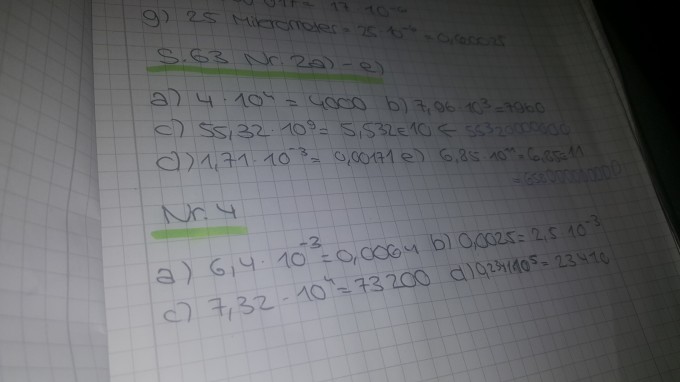 = 17 · 10
g) 25 Mikrometer = 25 · 10 = 0,000025
S.63 Nr. 2a) - e)
a) 4 · 10⁴ = 4000 b) 7,06 · 10³ = 7060
c) 55,32 · 10⁹ = 5,532 = 10 = 55320000000
d) 1,71 · 10⁻³ = 0,00171 e) 6,85 · 10¹¹ = 6,85 = 11
Nr. 4
a) 6,4 · 10⁻³ = 0,0064 b) 0,0025 = 2,5 · 10⁻³
c) 7,32 · 10⁴ = 73200 d) 10⁵ = 23410